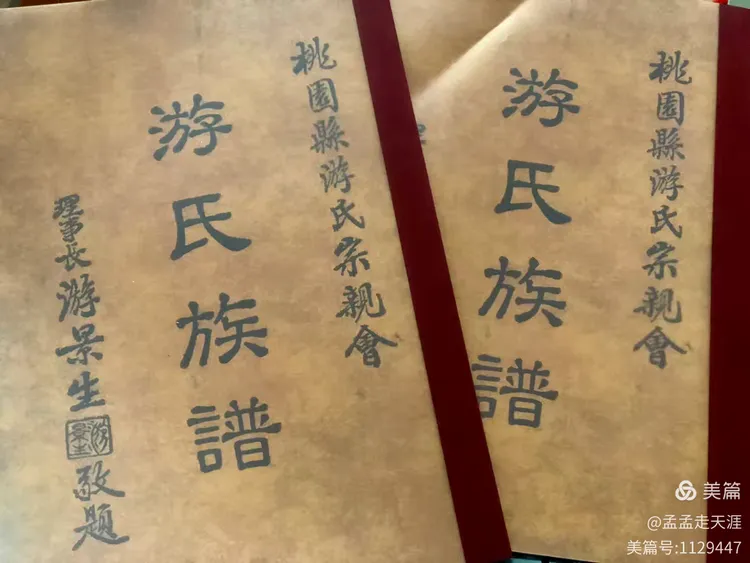 桃園縣游氏宗親會
游氏族譜
理事長游景生敬題
桃園縣游氏宗親會
游氏族譜
美篇
@孟孟走天涯
美篇号:1129447